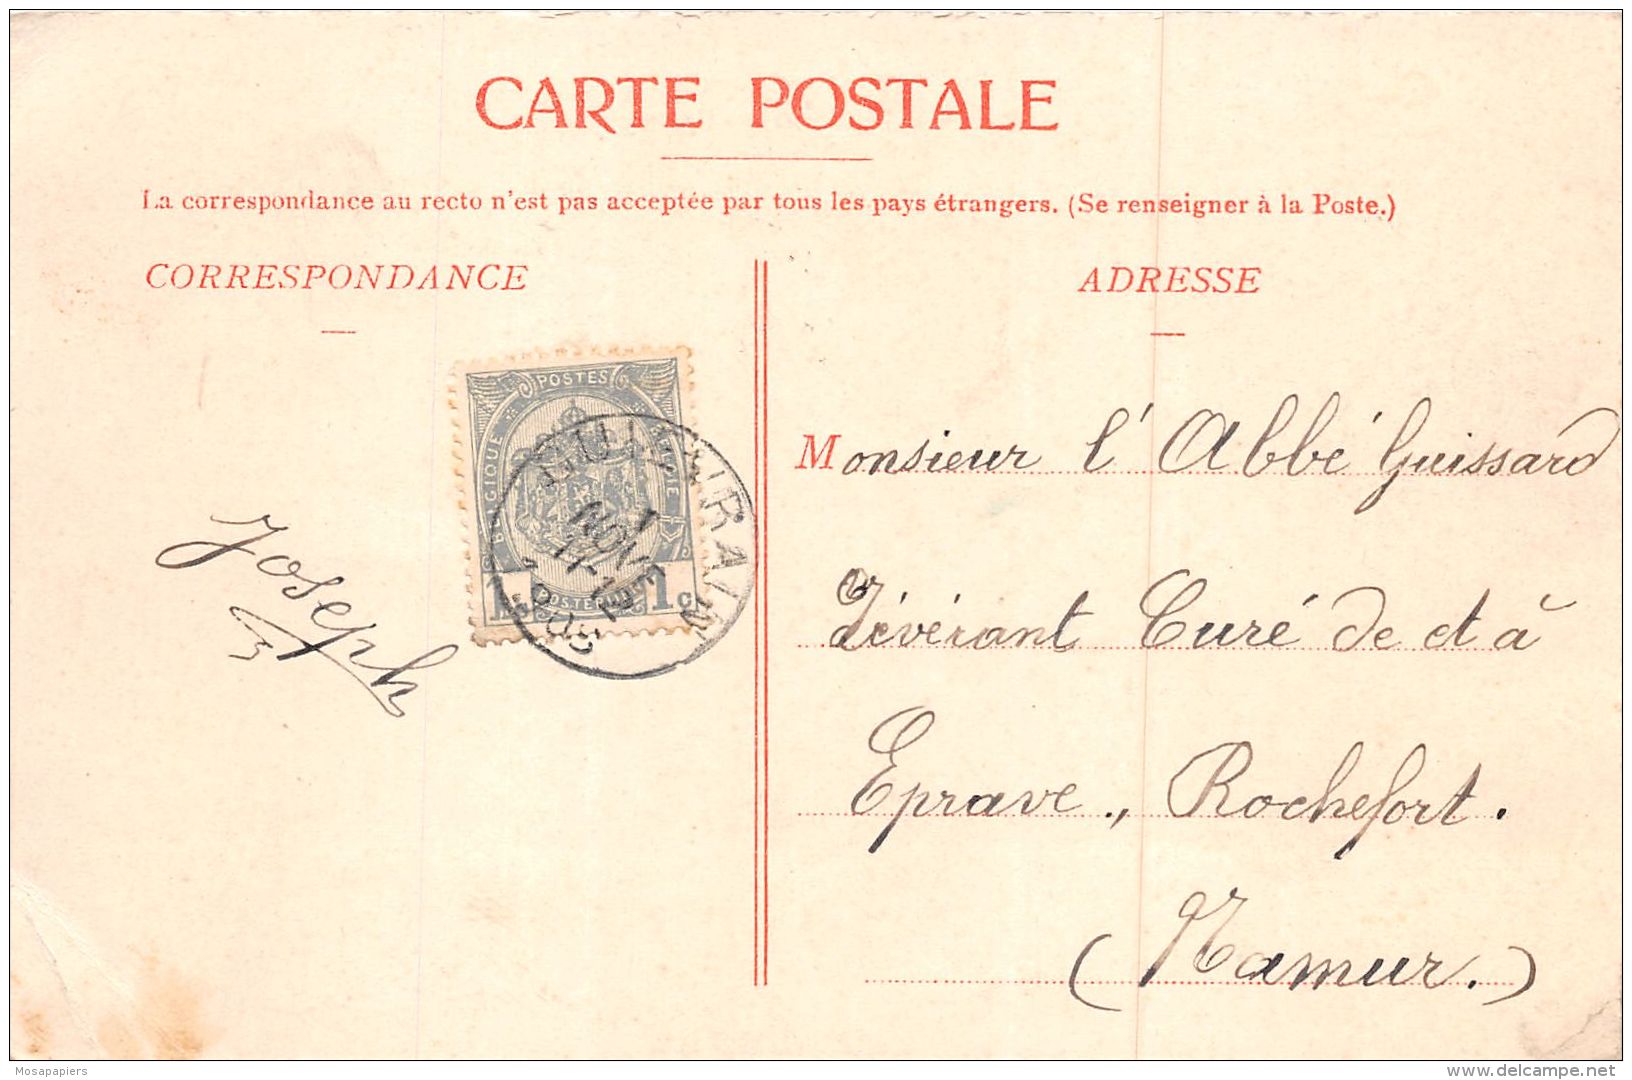 CARTE POSTALE
La correspondance au recto n'est pas acceptée par tous les pays étrangers. (Se renseigner à la Poste.)
CORRESPONDANCE
ADRESSE
POSTES
BELGIQUE
1c
NOVE
Joseph
Monsieur l'Abbé Guissard
Curé de et à
Eprave., Rochefort.
(Namur.)
Mosapapiers
www.delcampe.net